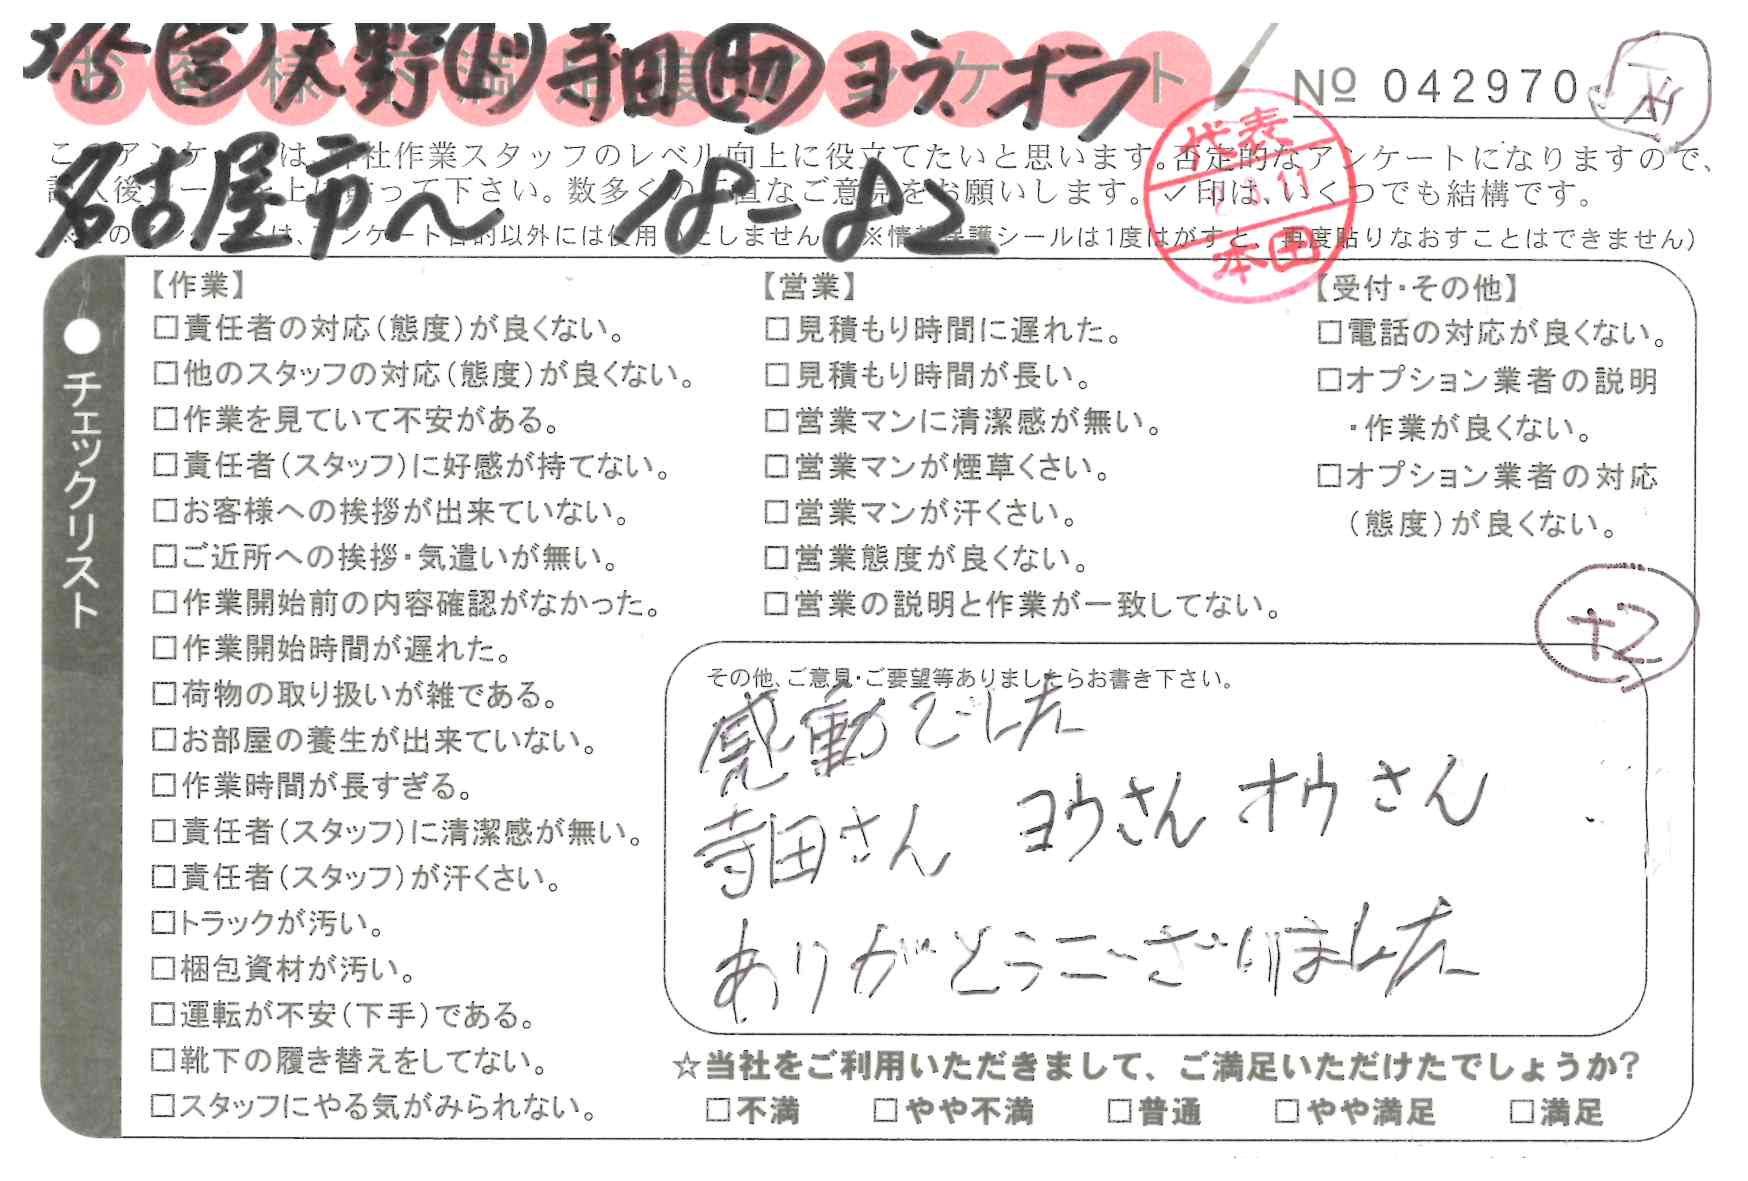 天野 寺田 ヨウ、オウ
お客様不満足度アンケート
№ 042970
このアンケートは、社作業スタッフのレベル向上に役立てたいと思います。否定的なアンケートになりますので、
記入後シールを上に貼って下さい。数多くの正直なご意見をお願いします。✓印は、いくつでも結構です。
名古屋市へ 18-82
※このアンケートは、アンケート目的以外には使用いたしません ※情報保護シールは1度はがすと、再度貼りなおすことはできません)
代表
本田
●チェックリスト
【作業】
□責任者の対応(態度)が良くない。
□他のスタッフの対応(態度)が良くない。
□作業を見ていて不安がある。
□責任者(スタッフ)に好感が持てない。
□お客様への挨拶が出来ていない。
□ご近所への挨拶・気遣いが無い。
□作業開始前の内容確認がなかった。
□作業開始時間が遅れた。
□荷物の取り扱いが雑である。
□お部屋の養生が出来ていない。
□作業時間が長すぎる。
□責任者(スタッフ)に清潔感が無い。
□責任者(スタッフ)が汗くさい。
□トラックが汚い。
□梱包資材が汚い。
□運転が不安(下手)である。
□靴下の履き替えをしてない。
□スタッフにやる気がみられない。
【営業】
□見積もり時間に遅れた。
□見積もり時間が長い。
□営業マンに清潔感が無い。
□営業マンが煙草くさい。
□営業マンが汗くさい。
□営業態度が良くない。
□営業の説明と作業が一致してない。
【受付・その他】
□電話の対応が良くない。
□オプション業者の説明
・作業が良くない。
□オプション業者の対応
(態度)が良くない。
+2
その他、ご意見・ご要望等ありましたらお書き下さい。
感動でした
寺田さん ヨウさん オウさん
ありがとうございました
☆当社をご利用いただきまして、ご満足いただけたでしょうか?
□不満 □やや不満 □普通 □やや満足 □満足